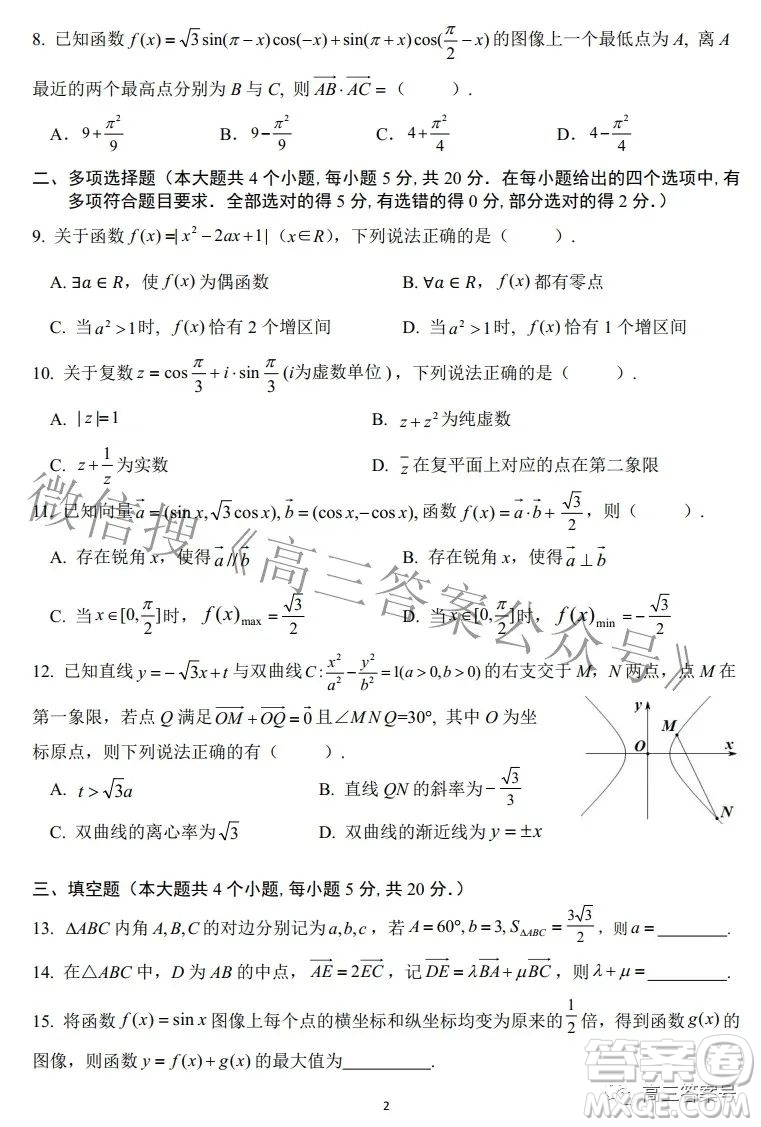 8. 已知函数 f(x)=√3sin(π−x)cos(−x)+sin(π+x)cos(π/2−x) 的图像上一个最低点为 A, 离 A
最近的两个最高点分别为 B 与 C, 则 AB→·AC→=（ ）.
A. 9+π²/9 B. 9−π²/9 C. 4+π²/4 D. 4−π²/4
二、多项选择题（本大题共 4 个小题,每小题 5 分,共 20 分．在每小题给出的四个选项中,有
多项符合题目要求．全部选对的得 5 分,有选错的得 0 分,部分选对的得 2 分．）
9. 关于函数 f(x)=|x²−2ax+1|（x∈R），下列说法正确的是（ ）.
A. ∃a∈R，使 f(x) 为偶函数 B. ∀a∈R，f(x) 都有零点
C. 当 a²>1 时, f(x) 恰有 2 个增区间 D. 当 a²>1 时，f(x) 恰有 1 个增区间
10. 关于复数 z=cos π/3+i·sin π/3 (i为虚数单位)，下列说法正确的是（ ）.
A. |z|=1 B. z+z² 为纯虚数
C. z+1/z 为实数 D. z̄ 在复平面上对应的点在第二象限
11. 已知向量 a→=(sin x,√3cos x),b→=(cos x,−cos x), 函数 f(x)=a→·b→+√3/2，则（ ）.
A. 存在锐角 x，使得 a→//b→ B. 存在锐角 x，使得 a→⊥b→
C. 当 x∈[0,π/2]时，f(x)max=√3/2 D. 当 x∈[0,π/2]时，f(x)min=−√3/2
12. 已知直线 y=−√3x+t 与双曲线 C:x²/a²−y²/b²=1(a>0,b>0) 的右支交于 M，N 两点，点 M 在
第一象限，若点 Q 满足 OM→+OQ→=0→ 且∠MNQ=30°, 其中 O 为坐
标原点，则下列说法正确的有（ ）.
A. t>√3a B. 直线 QN 的斜率为 −√3/3
C. 双曲线的离心率为√3 D. 双曲线的渐近线为 y=±x
y
M
O
x
N
三、填空题（本大题共 4 个小题,每小题 5 分,共 20 分．）
13. ΔABC 内角 A,B,C 的对边分别记为 a,b,c，若 A=60°,b=3,S△ABC=3√3/2，则 a=________.
14. 在△ABC 中，D 为 AB 的中点，AE→=2EC→，记 DE→=λBA→+μBC→，则 λ+μ=________.
15. 将函数 f(x)=sin x 图像上每个点的横坐标和纵坐标均变为原来的 1/2 倍，得到函数 g(x) 的
图像，则函数 y=f(x)+g(x) 的最大值为________.
2
微信搜《高三答案公众号》
答案圈
高三答案号
MXQE.COM